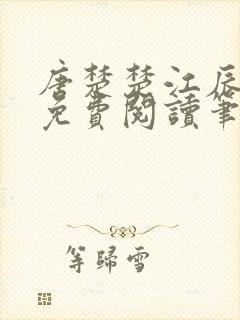 唐楚楚江辰
免費閱讀筆
等歸雪